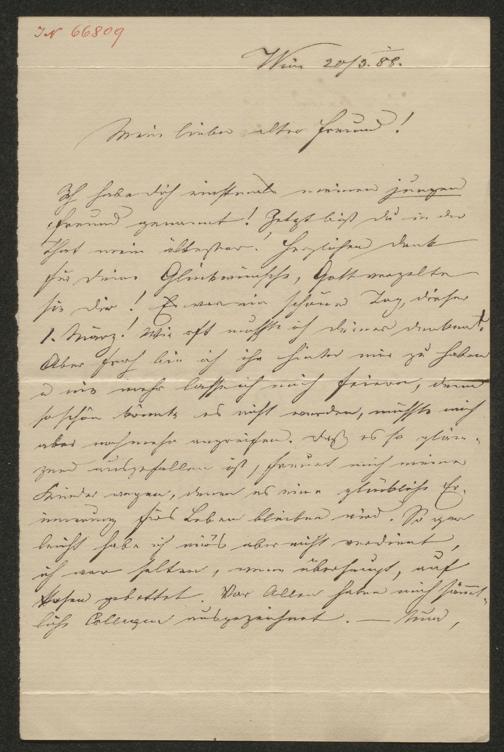 IN 66809
Wien 20/3. 88.
Mein lieber alter Freund!
Ich habe dich einstmals meinen jungen
Freund genannt! Jetzt bist du in der
That mein ältester! Herzlichen Dank
für deine Glückwünsche, Gott vergelte
sie dir! Es war ein schöner Tag, dieser
1. März! Wie oft mußte ich deiner denken!
Aber froh bin ich ihn hinter mir zu haben
u nie mehr lasse ich mich feiern, denn
so schön könnte es nicht werden, müßte mich
aber noch mehr angreifen. Daß es so glän-
zend ausgefallen ist, freut mich meiner
Kinder wegen, denen es eine glückliche Er-
innerung fürs Leben bleiben wird. So gar
leicht habe ich aber nicht verdient,
ich war selten, wenn überhaupt, auf
Rosen gebettet. Vor Allem haben mich sämmt-
liche Collegen ausgezeichnet. — Nun,